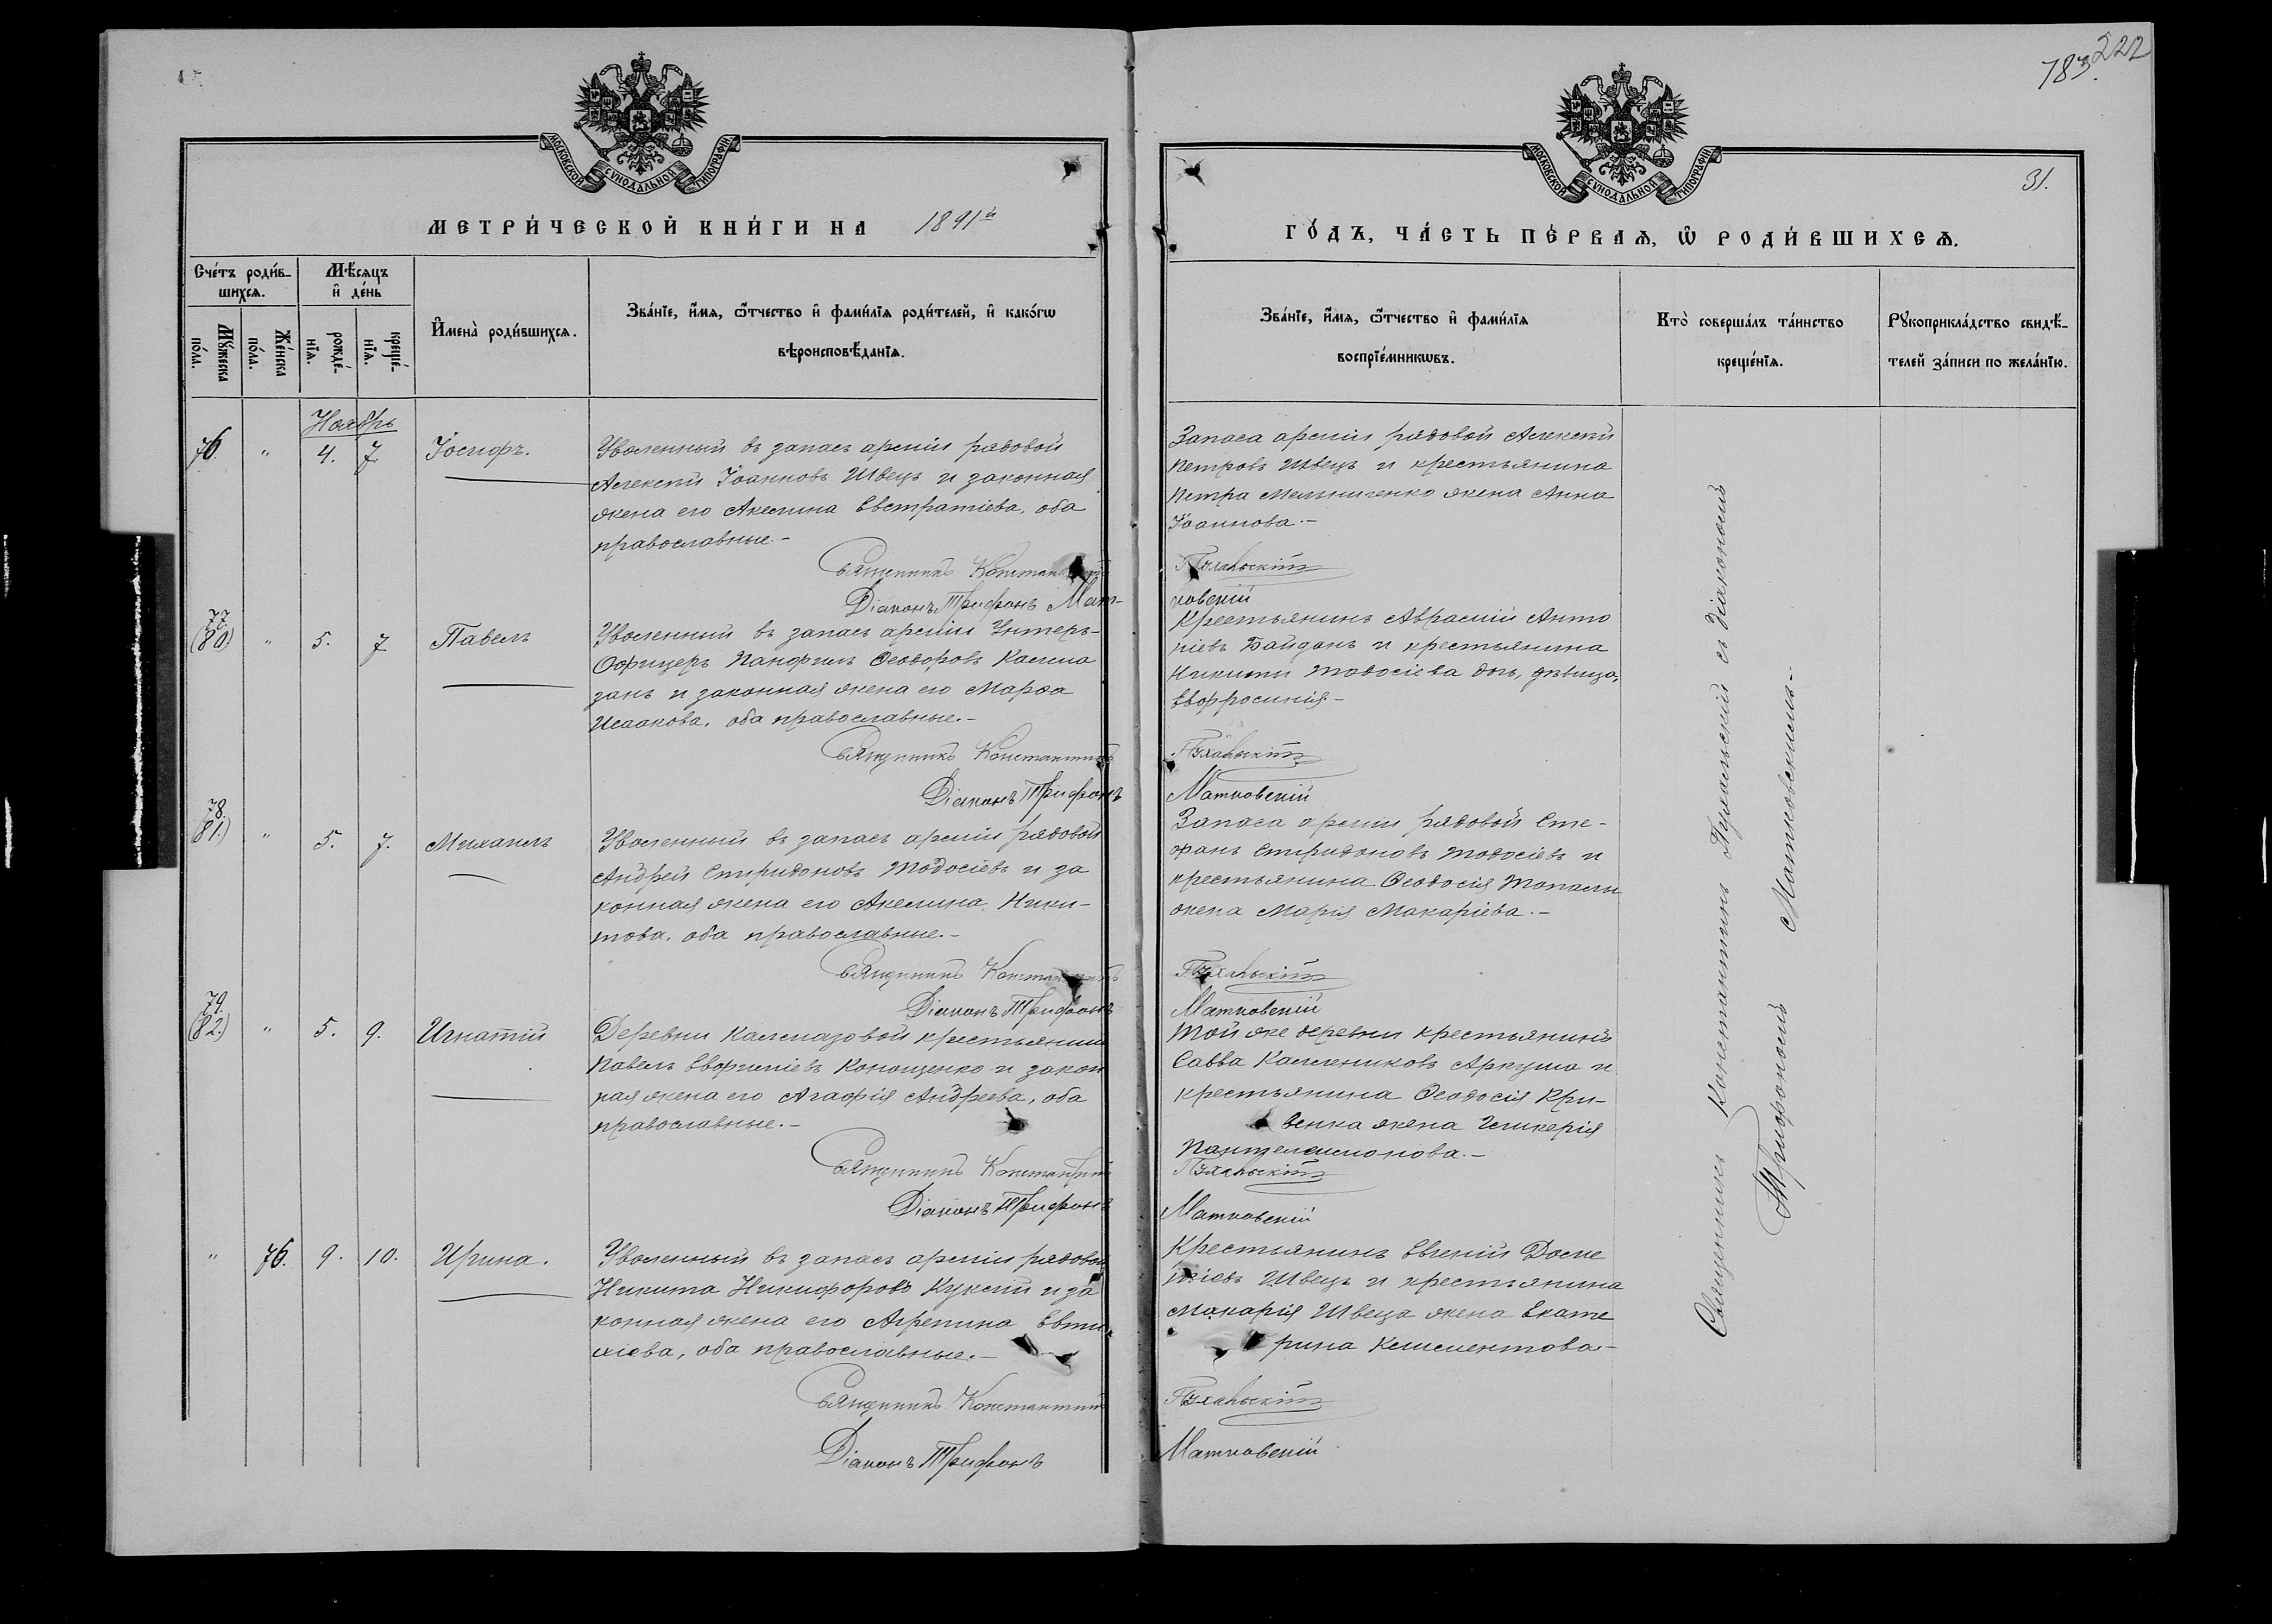 783. 222
31.
МОСКОВСКОЙ СѴНОДАЛЬНОЙ ТИПОГРАФІИ.
МОСКОВСКОЙ СѴНОДАЛЬНОЙ ТИПОГРАФІИ.
МЕТРИ́ЧЕСКОЙ КНИ́ГИ НА 1891й
ГО́ДЪ, ЧА́СТЬ ПЕ́РВАѦ, Ѡ҆ РОДИ́ВШИХСѦ.
Сче́тъ роди́в-
шихсѧ.
Мѣ́сѧцъ
и҆ де́нь
Мꙋ́жеска
по́ла.
Же́нска
по́ла.
рожде́-
нїѧ.
креще́-
нїѧ.
И҆мена̀ роди́вшихсѧ.
Зва́нїе, и҆́мѧ, ѻ҆́тчество и҆ фами́лїѧ роди́телей, и҆ како́гѡ
вѣроисповѣ́данїѧ.
Зва́нїе, и҆́мѧ, ѻ҆́тчество и҆ фами́лїѧ
воспрїе́мникѡвъ.
Кто̀ соверша́лъ та́инство
креще́нїѧ.
Рꙋкоприкла́дство свидѣ́-
телей за́писи по жела́нїю.
Ноябрь
76. " 4. 7. Іосифъ.
Уволенный въ запасъ арміи рядовой
Алексій Іоанновъ Швецъ и законная
жена его Акилина Евстратіева, оба
православные.-
Священникъ Константинъ
Діаконъ Трифонъ Мат-
Запаса арміи рядовой Алексій
Петровъ Швецъ и крестьянина
Петра Мельниченко жена Анна
Іоаннова.-
Пухальскій
ковскій
77.
(80) " 5. 7. Павелъ
Уволенный въ запасъ арміи Унтеръ-
Офицеръ Панфилъ Ѳеодоровъ Калма
занъ и законная жена его Марѳа
Исаакова, оба православные.-
Священникъ Константинъ
Діаконъ Трифонъ
Крестьянинъ Аврамій Анто
ніевъ Байданъ и крестьянина
Никиты Тодосіева дочь, дѣвица,
Евфросинія.-
Пухальскій
Матковскій
78.
(81.) " 5. 7. Михаилъ
Уволенный въ запасъ арміи рядовой
Андрей Спиридоновъ Тодосіевъ и за
конная жена его Акилина Ники-
това, оба православные.-
Священникъ Константинъ
Діаконъ Трифонъ
Запаса арміи рядовой Сте-
фанъ Спиридоновъ Тодосіевъ и
крестьянина Ѳеодосія Топалы
жена Марія Макаріева.-
Пухальскій
Матковскій
79.
(82.) " 5. 9. Игнатій
Деревни Калмазовой крестьянинъ
Павелъ Евфиміевъ Конощенко и закон
ная жена его Агафія Андреева, оба
православные.-
Священникъ Константинъ
Діаконъ Трифонъ
Той же деревни крестьянинъ
Савва Каллениковъ Аркуша и
крестьянина Ѳеодосія Кри-
венка жена Гликерія
Пантелеимонова.-
Пухальскій
Матковскій
" 76. 9. 10. Ирина.
Уволенный въ запасъ арміи рядовой
Никита Никифоровъ Куксій и за
конная жена его Агрепина Евти
хіева, оба православные.-
Священникъ Константинъ
Діаконъ Трифонъ
Крестьянинъ Евгеній
Швецъ и крестьянина
Макарія Швеца жена Екате
рина Клементова-
Пухальскій
Матковскій
Священникъ Константинъ Пухальскій съ діакономъ
Трифономъ Матковскимъ.-